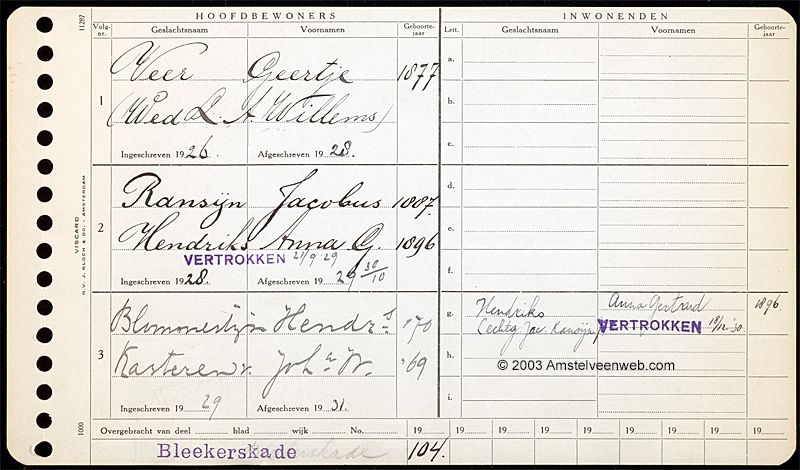 HOOFDBEWONERS
Volg-nr. Geslachtsnaam Voornamen Geboorte-jaar
1
Veer Geertje 1877
(Wed L. A. Willems)
Ingeschreven 1926. Afgeschreven 1928.
2
Ransijn Jacobus 1887.
Hendriks Anna G. 1896
VERTROKKEN 21/9 29
Ingeschreven 1928. Afgeschreven 19 29 30/10
3
Blommestijn Hendr-s '70
Kasteren v. Joh-s W. '69
Ingeschreven 19 29 Afgeschreven 1931.
INWONENDEN
Lett. Geslachtsnaam Voornamen Geboorte-jaar
a.
b.
c.
d.
e.
f.
g. Hendriks Anna Gertrard 1896
(echtg. Jac Ransijn) VERTROKKEN 18/12 '30
h.
i.
© 2003 Amstelveenweb.com
Overgebracht van deel blad wijk No. 19 19 19 19 19 19 19 19 19
Bleekerskade 104.
11287
VISCARD
N.V. J. BLOCH & CO. - AMSTERDAM
1000